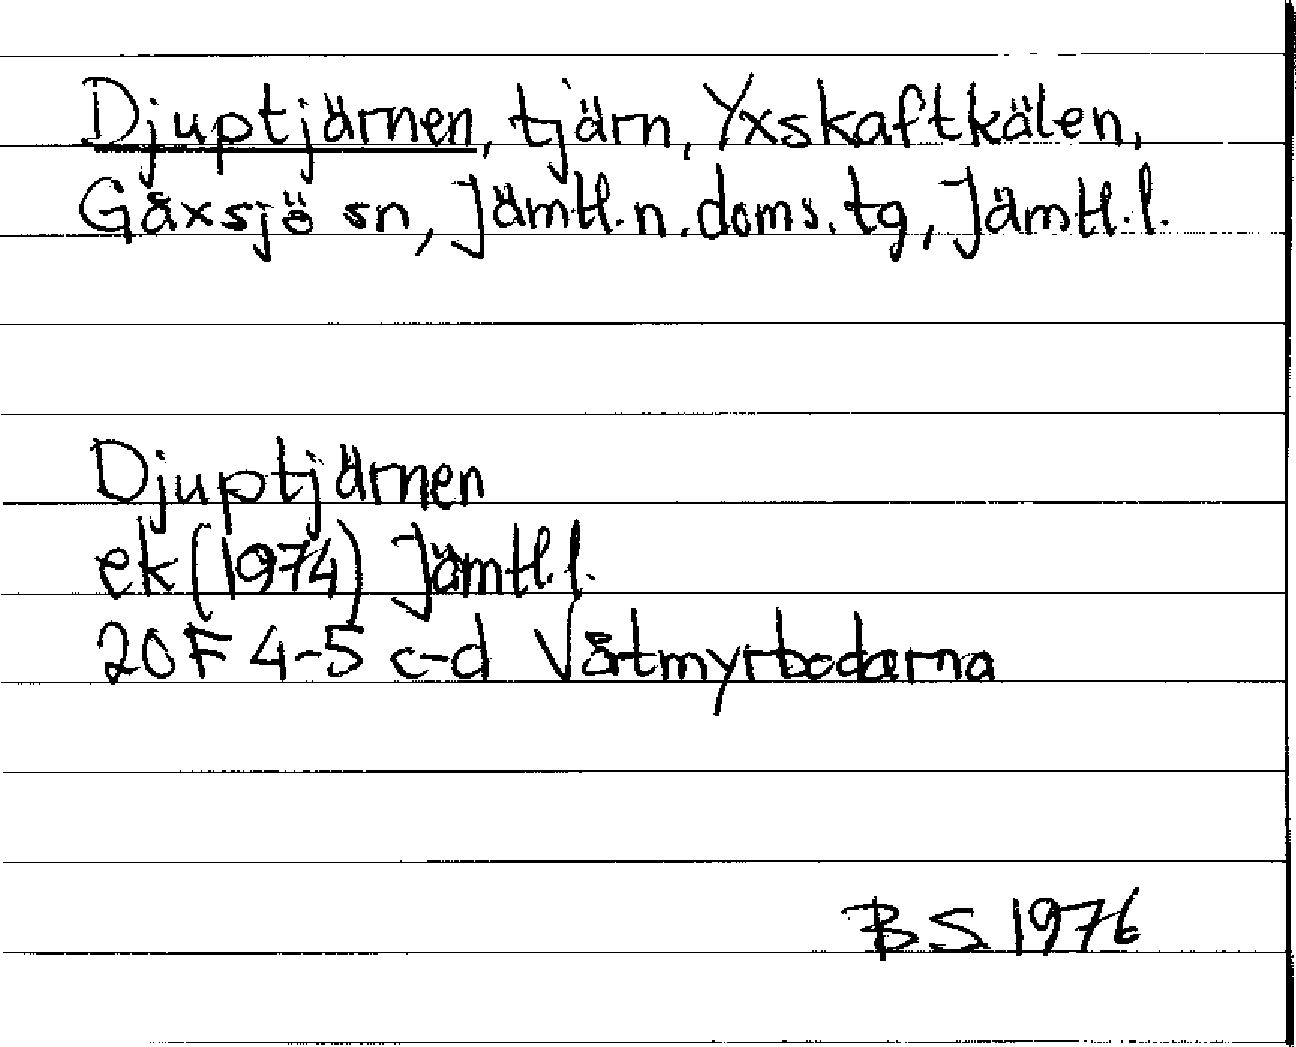 Djuptjärnen, tjärn, Yxskaftkälen,
Gåxsjö sn, Jämtl. n. doms. tg, Jämtl. l.
Djuptjärnen
ek (1974) Jämtl. l.
20 F 4-5 c-d Våtmyrbodarna
BS 1976